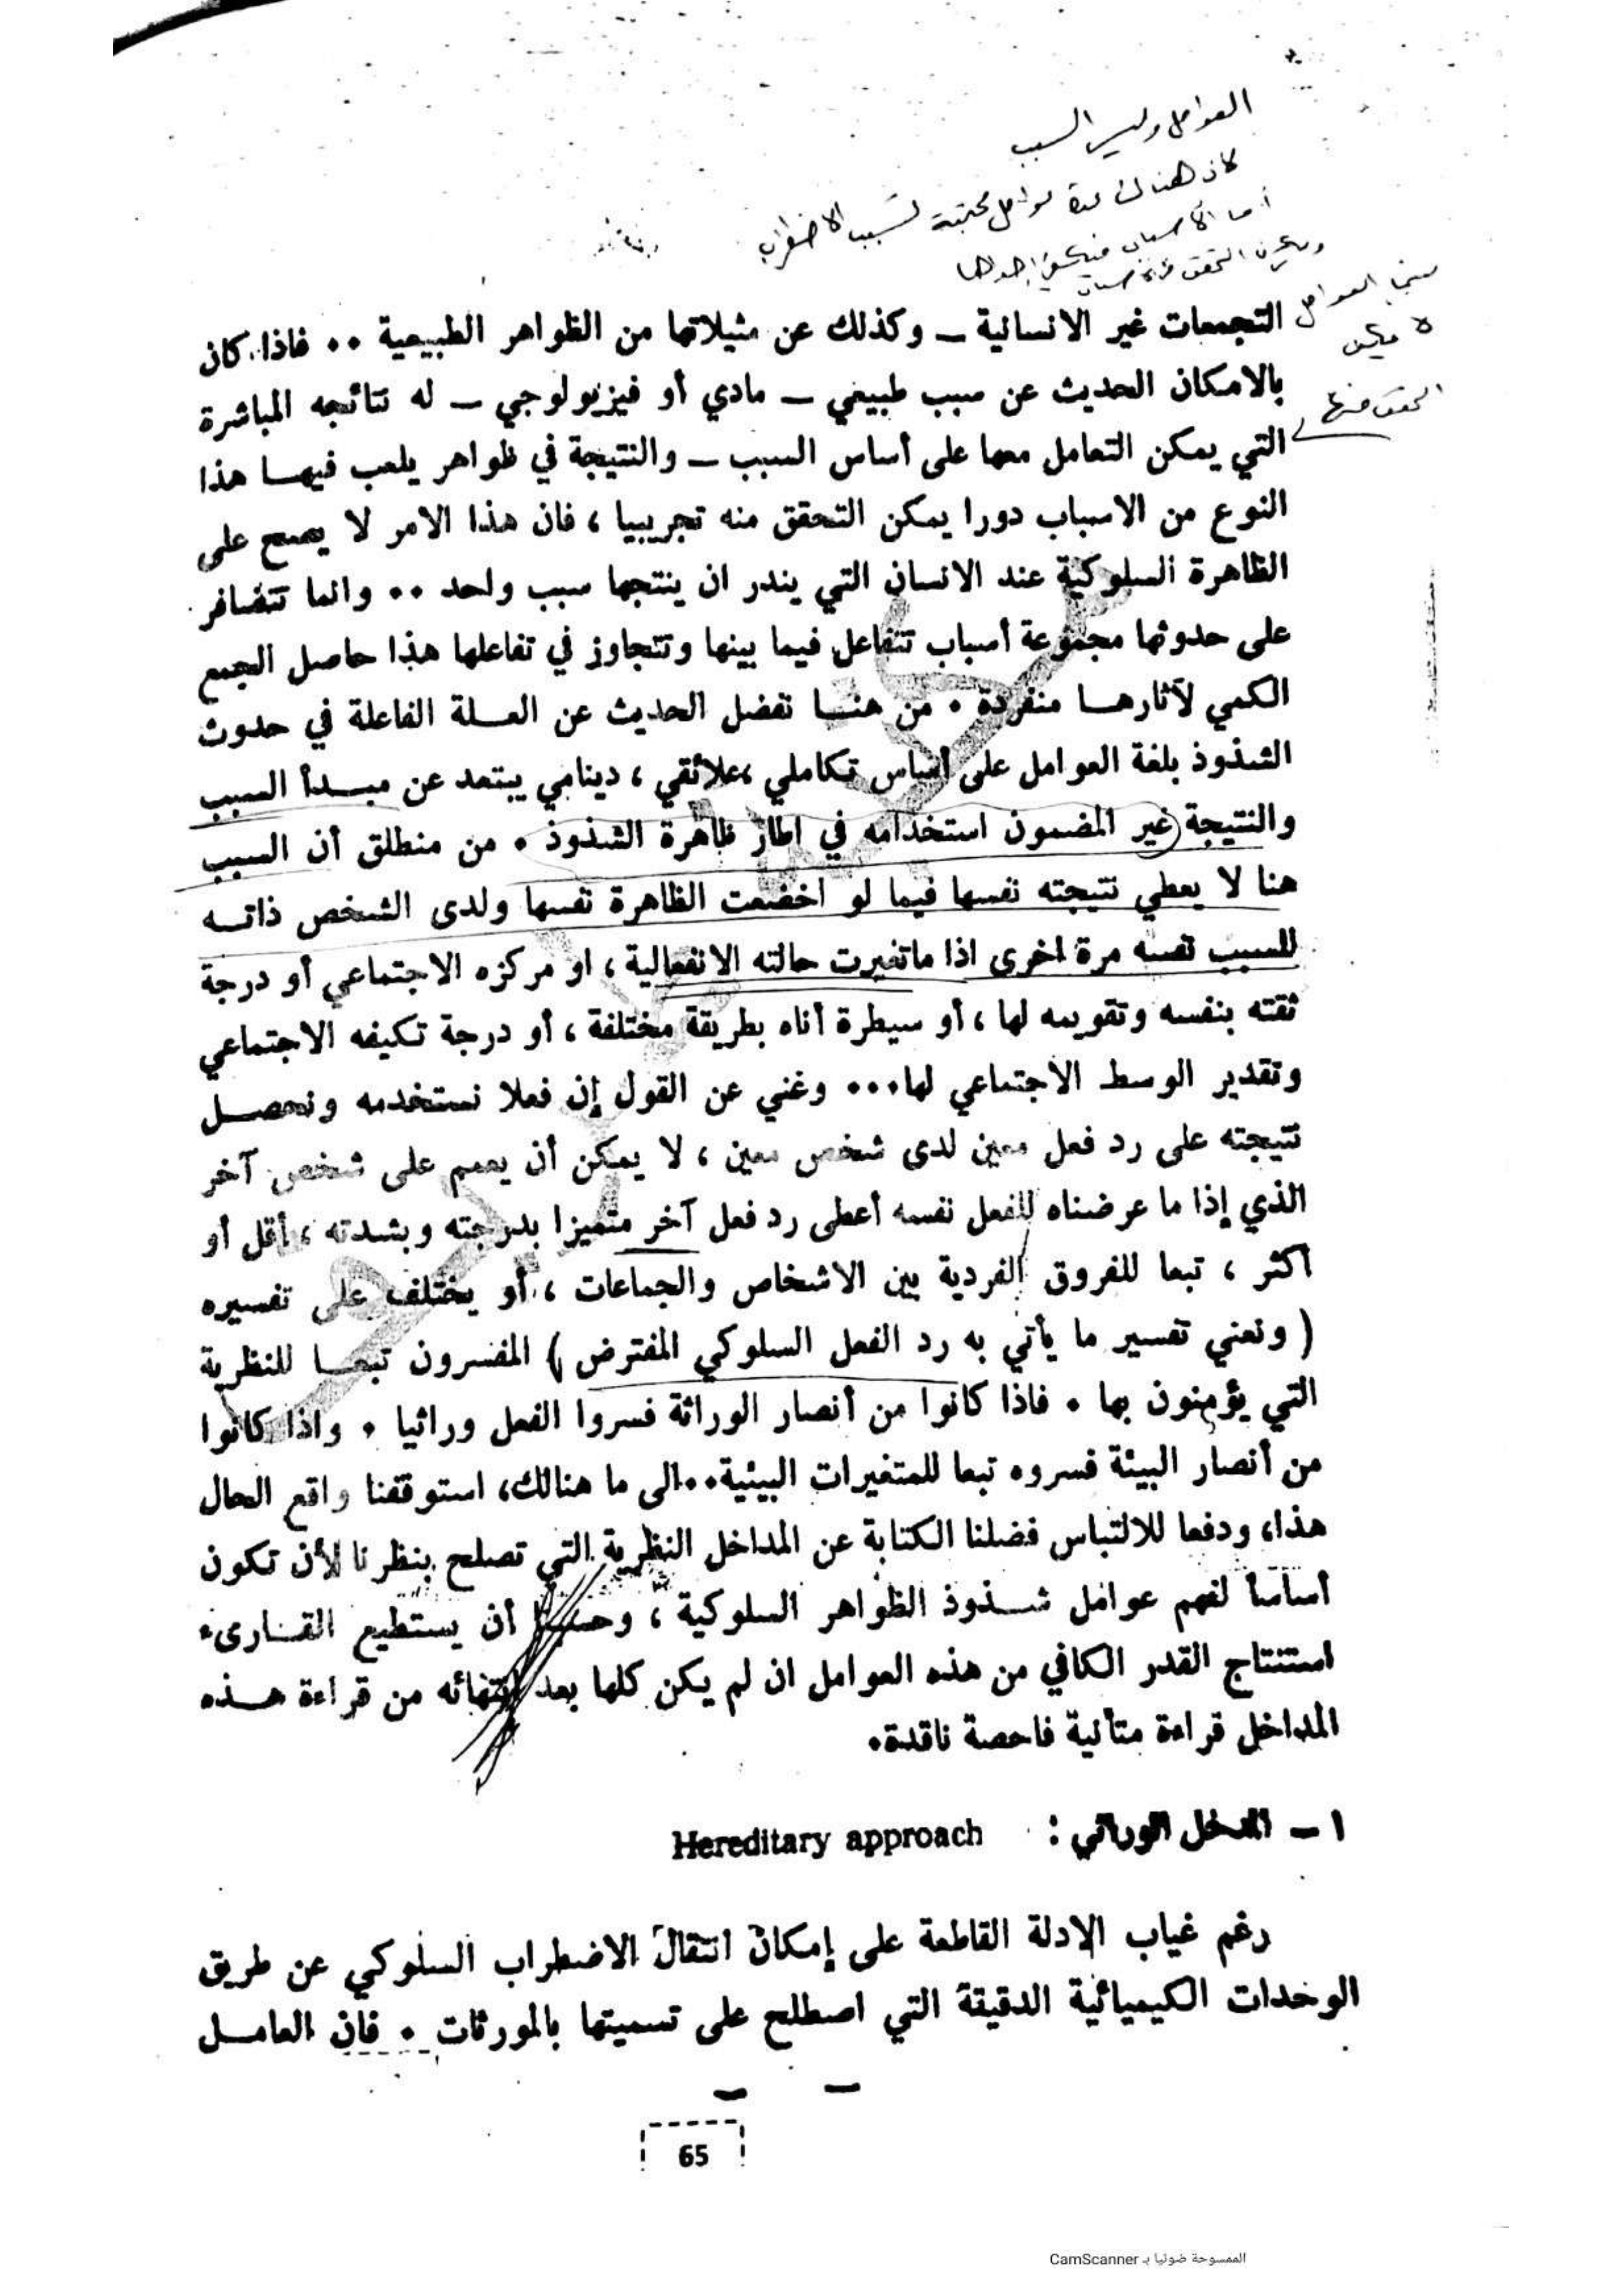 العوامل وليس السبب
لان هنالك عدة عوامل مجتمعة تسبب الاضطراب
أما الأسباب فيكفي احداها
ويمكن التحقق
بينما العوامل
لا يمكن
التحقق منها
التجمعات غير الانسانية – وكذلك عن مثيلاتها من الظواهر الطبيعية ٠٠ فاذا كان
بالامكان الحديث عن سبب طبيعي – مادي أو فيزيولوجي – له نتائجه المباشرة
التي يمكن التعامل معها على أساس السبب – والنتيجة في ظواهر يلعب فيهـا هذا
النوع من الاسباب دورا يمكن التحقق منه تجريبيا ، فان هذا الامر لا يصح على
الظاهرة السلوكية عند الانسان التي يندر ان ينتجها سبب واحد ٠٠ وانما تتضافر
على حدوثها مجموعة أسباب تتفاعل فيما بينها وتتجاوز في تفاعلها هذا حاصل الجمع
الكمي لآثارهـا منفردة ٠ من هنـا نفضل الحديث عن العـلة الفاعلة في حدوث
الشذوذ بلغة العوامل على أساس تكاملي ،علائقي ، دينامي يبتعد عن مبـدأ السبب
والنتيجة غير المضمون استخدامه في اطار ظاهرة الشذوذ ٠ من منطلق أن السبب
هنا لا يعطي نتيجته نفسها فيما لو اخضعت الظاهرة نفسها ولدى الشخص ذاتـه
للسبب نفسه مرة اخرى اذا ماتغيرت حالته الانفعالية ، او مركزه الاجتماعي أو درجة
ثقته بنفسه وتقويمه لها ، أو سيطرة أناه بطريقة مختلفة ، أو درجة تكيفه الاجتماعي
وتقدير الوسط الاجتماعي لها٠٠٠ وغني عن القول إن فعلا نستخدمه ونحصـل
نتيجته على رد فعل معين لدى شخص معين ، لا يمكن أن يعمم على شخص آخر
الذي إذا ما عرضناه للفعل نفسه أعطى رد فعل آخر متميزا بدرجته وبشدته ، أقل أو
اكثر ، تبعا للفروق الفردية بين الاشخاص والجماعات ، أو يختلف على تفسيره
( ونعني تفسير ما يأتي به رد الفعل السلوكي المفترض ) المفسرون تبعـا للنظرية
التي يؤمنون بها ٠ فاذا كانوا من أنصار الوراثة فسروا الفعل وراثيا ٠ واذا كانوا
من أنصار البيئة فسروه تبعا للمتغيرات البيئية٠٠الى ما هنالك، استوقفنا واقع الحال
هذا، ودفعا للالتباس فضلنا الكتابة عن المداخل النظرية التي تصلح بنظرنا لأن تكون
أساسا لفهم عوامل شـذوذ الظواهر السلوكية ، وحسبنا أن يستطيع القـارىء
استنتاج القدر الكافي من هذه العوامل ان لم يكن كلها بعد انتهائه من قراءة هـذه
المداخل قراءة متأنية فاحصة ناقدة٠
١ – المدخل الوراثي : Hereditary approach
رغم غياب الادلة القاطعة على إمكان انتقال الاضطراب السلوكي عن طريق
الوحدات الكيميائية الدقيقة التي اصطلح على تسميتها بالمورثات ٠ فان العامـل
65
الممسوحة ضوئيا بـ CamScanner